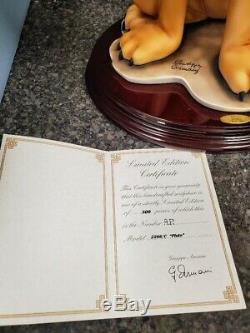 Giuseppe
Armani
Limited Edition
Certificate
This Certificate is your guaranty
that this handcrafted sculpture is
one of a strictly Limited Edition
of 500 pieces of which this
is the Number A.P.
Model
Giuseppe Armani
G. Armani